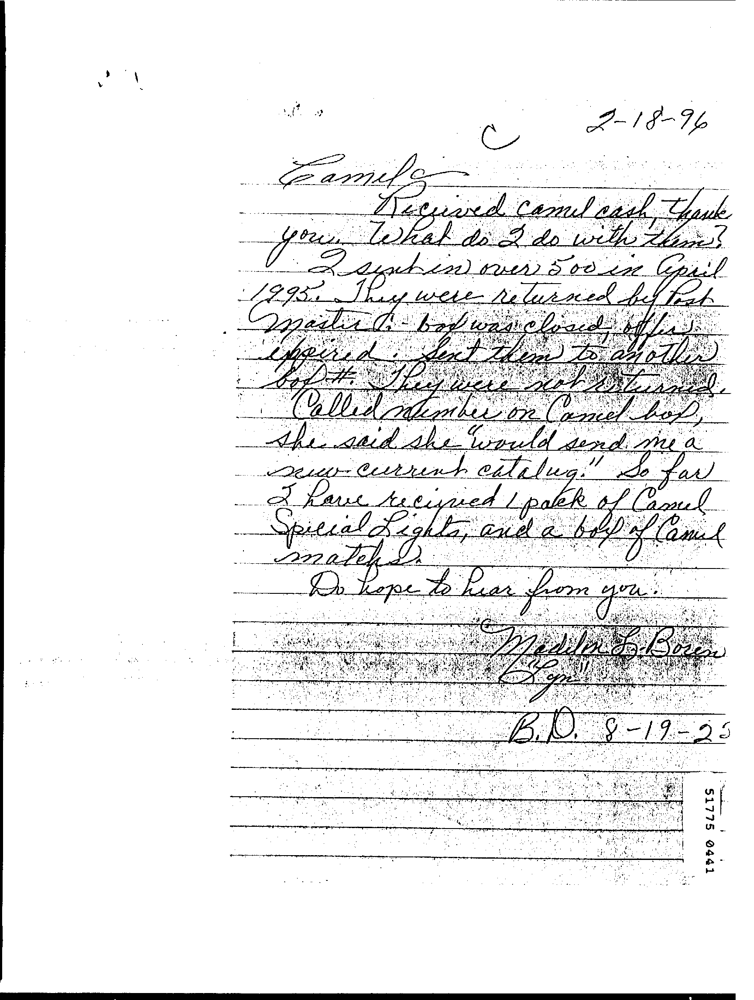 2-18-96
C
Camels
Received camel cash, thank
you. What do I do with them?
I sent in over 500 in April
1995. They were returned by Post
Master :- box was closed, offer
expired. Sent them to another
box #. They were not returned.
Called number on Camel box,
she said she "would send me a
new current catalug." So far
I have recieved 1 pack of Camel
Special Lights, and a box of Camel
matchs.
Do hope to hear from you.
L. Boren
"Lyn"
B.D. 8-19-23
51775 0441